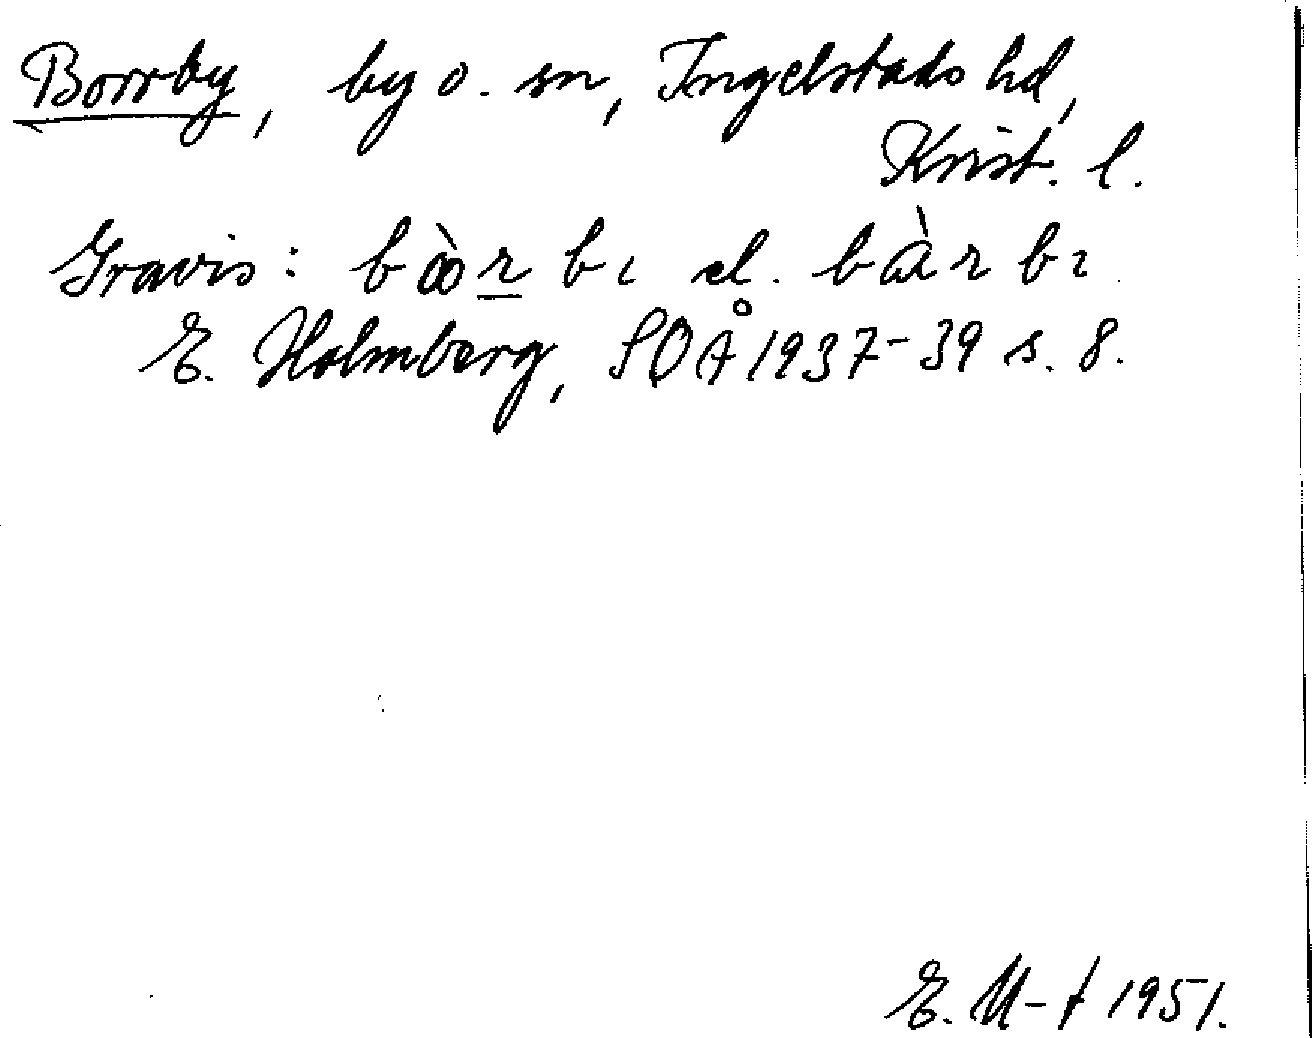 Borrby, by o. sn, Ingelstads hd,
Krist. l.
Gravis: bòrbɩ el. bàrbɩ
E. Holmberg, SOÅ 1937-39 s. 8.
E. M-t 1951.